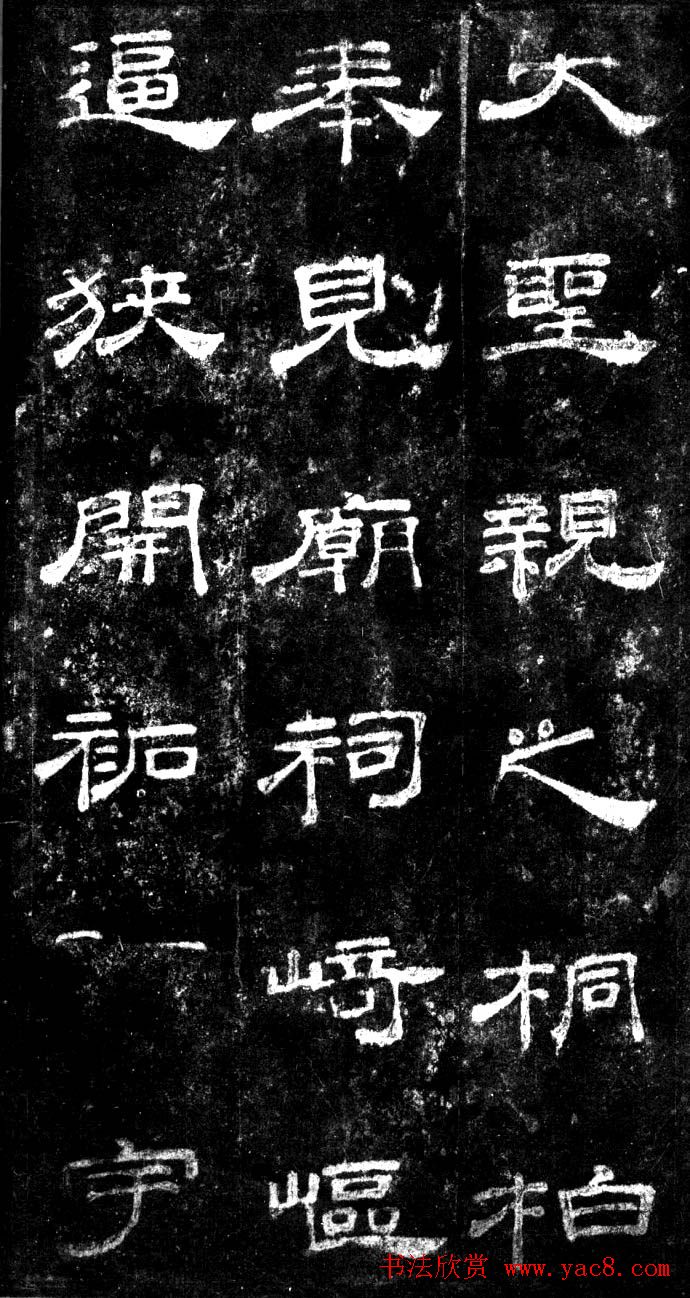 大聖親之桐柏
奉見廟祠崎嶇
逼狹開祏一宇
书法欣赏 www.yac8.com